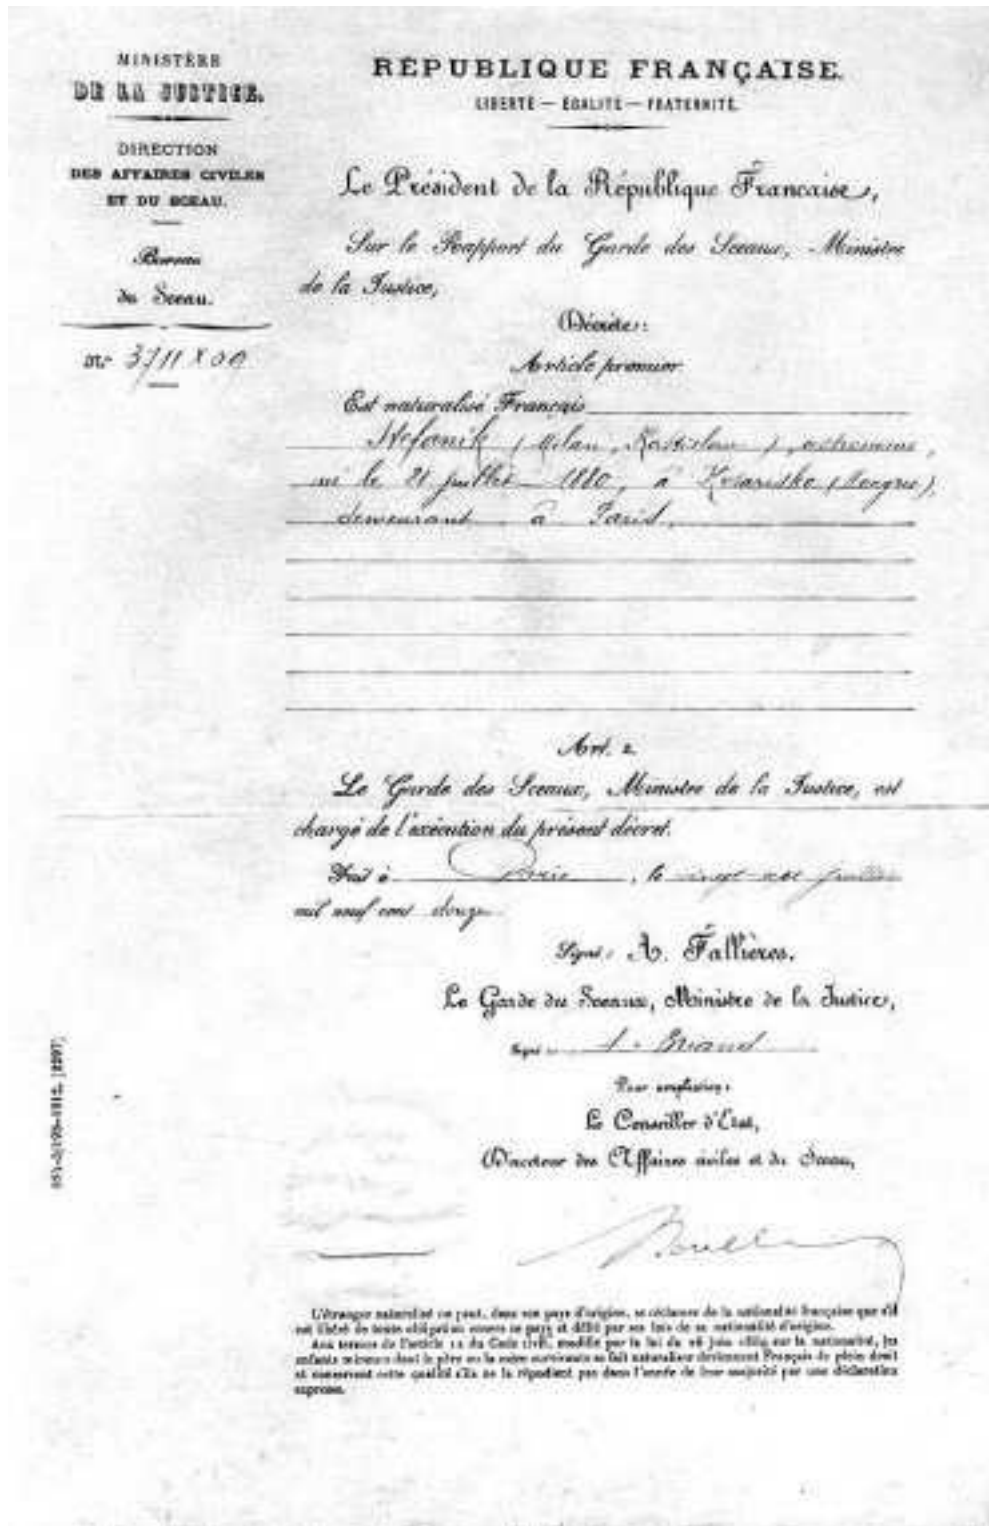 MINISTÈRE
DE LA JUSTICE.
DIRECTION
DES AFFAIRES CIVILES
ET DU SCEAU.
Bureau
du Sceau.
N° 3711 X 09
RÉPUBLIQUE FRANÇAISE.
LIBERTÉ — ÉGALITÉ — FRATERNITÉ.
Le Président de la République Française,
Sur le Rapport du Garde des Sceaux, Ministre
de la Justice,
Décrète:
Article premier.
Est naturalisé Français
Stefanik (Milan, Rastislav), astronome,
né le 21 juillet 1880, à (Hongrie),
demeurant à Paris.
Art. 2.
Le Garde des Sceaux, Ministre de la Justice, est
chargé de l'exécution du présent décret.
Fait à Paris, le vingt juillet
mil neuf cent douze
Signé: A. Fallières.
Le Garde des Sceaux, Ministre de la Justice,
Signé: A. Briand
Pour ampliation:
Le Conseiller d'Etat,
Directeur des Affaires civiles et du Sceau,
L'étranger naturalisé ne peut, dans son pays d'origine, se réclamer de la nationalité française que s'il
est libéré de toute obligation envers ce pays et délié par ses lois de sa nationalité d'origine.
Aux termes de l'article 12 du Code civil, modifié par la loi du 26 juin 1889 sur la nationalité, les
enfants mineurs dont le père ou la mère survivante se fait naturaliser deviennent Français de plein droit
et conservent cette qualité s'ils ne la répudient pas dans l'année de leur majorité par une déclaration
expresse.